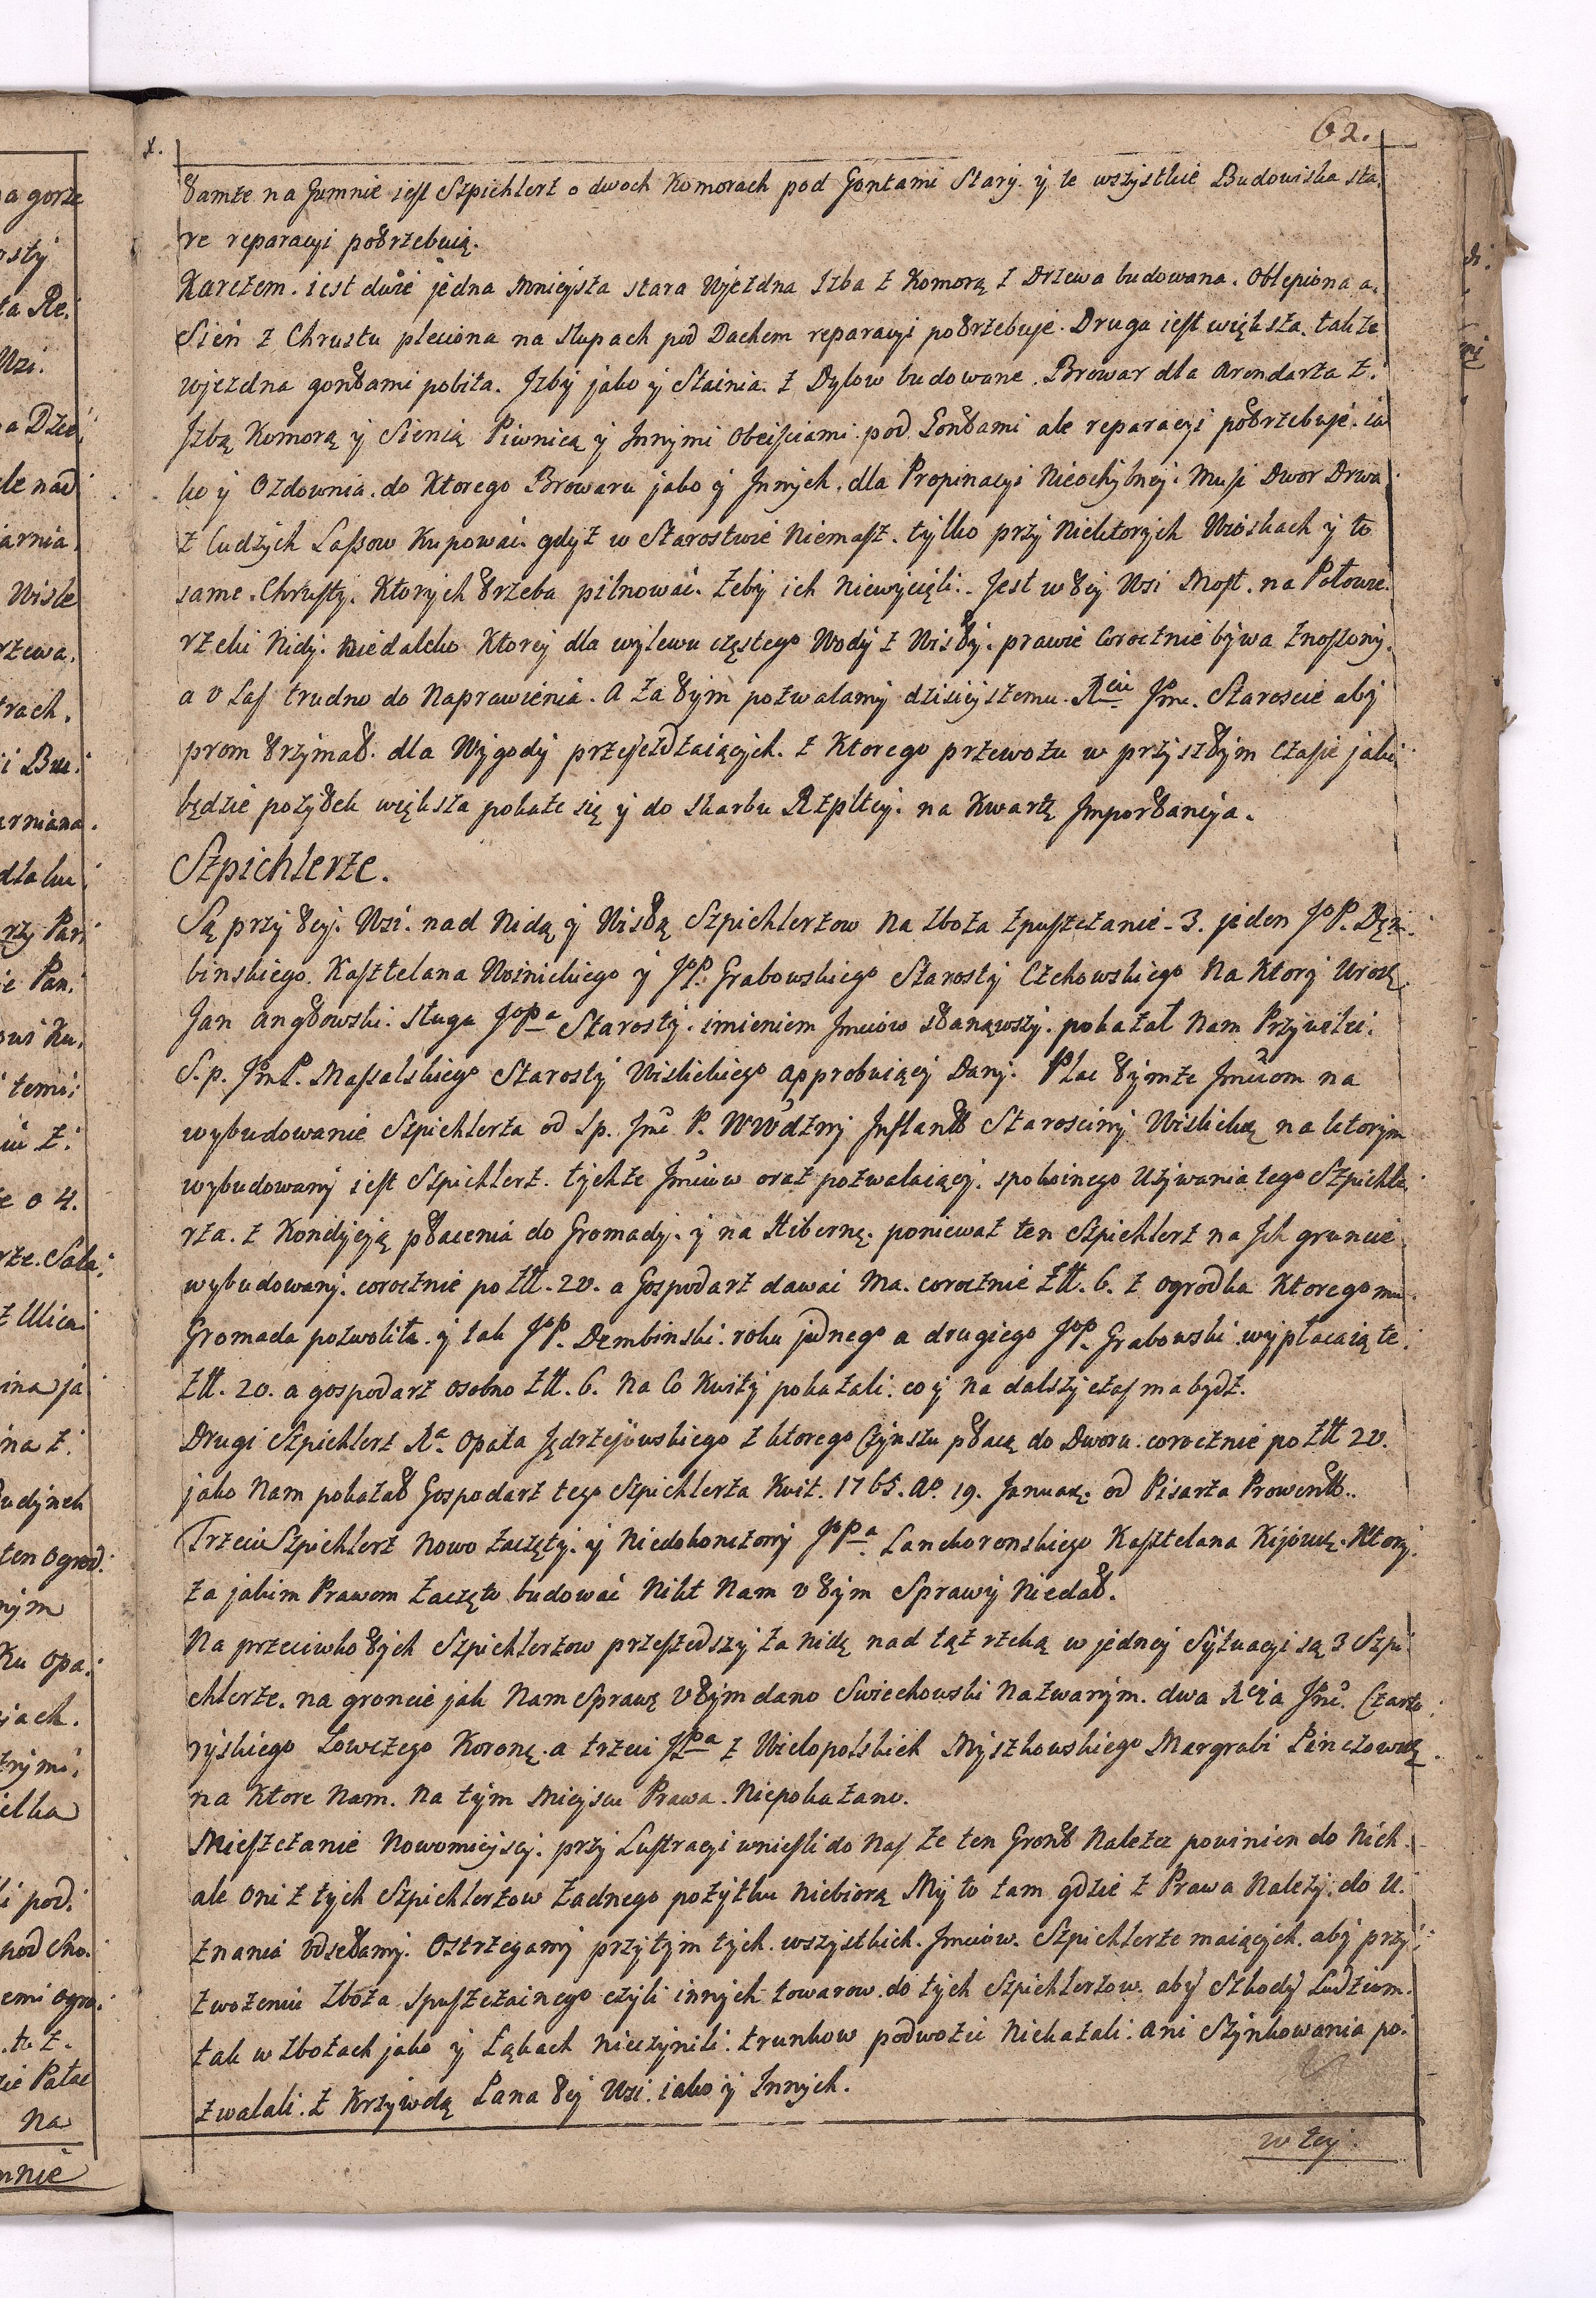 62.
Tamże na Gumnie iest Szpichlerz o dwoch Komorach pod Gontami Stary. y te wszystkie Budowiska sta,
re reparacyi potrzebuią.
Karczem. iest dwie jedna Mnieysza stara Wjezdna Izba z Komorą z Drzewa budowana. Oblepiona a,
Sień z Chrustu pleciona na słupach pod Dachem reparacyi potrzebuje. Druga iest większa. także
wjezdna gontami pobita. Izby jako y Stainia. z Dylow budowane. Browar dla Arendarza z.
Izbą Komorą y Sienią Piwnicą y Innymi Obeiściami pod Gontami ale reparacyi potrzebuje. ia
ko y Ozdownia. do Ktorego Browaru jako y Innych. dla Propinacyi Nieochybney. Musi Dwor Drwa
z cudzych Lassow Kupować. gdyz w Starostwie Niemasz. tylko przy Niektorych Wioskach y to
same. Chrusty. Ktorych trzeba pilnować. zeby ich Niewycięli. Jest w tey Wsi Most. na Połowie.
rzeki Nidy. Niedaleko Ktorey dla wylewu częstego Wody z Wisły. prawie Corocznie bywa znoszony.
a o Las trudno do Naprawienia. A za tym pozwalamy dzisieyszemu. Xciu Jmc. Staroscie aby
prom trzymał. dla Wygody przejezdzaiących. z Ktorego przewozu w przyszłym czasie jaki
będzie pozytek większa pokaze się y do Skarbu Rzpltey. na Kwartę Importancya.
Szpichlerze.
Są przy tey. Wsi. nad Nidą y Wisłą Szpichlerzow na zboza zpuszczanie. 3. jeden JoP. Dęm.
binskiego. Kasztelana Woinickiego y JoP. Grabowskiego Starosty Czchowskiego Na Ktory Urodz.
Jan Angłowski. sługa JoPa Starosty. imieniem Jmciow stanąwszy. pokazał Nam Przywilei.
S.p. JmP. Massalskiego Starosty Wislickiego approbuiący Dany. Plac tymze Jmciom na
wybudowanie Szpichlerza od Sp. Jmc P. WWdziny Inflantt Starosciny Wislickię na ktorym
wybudowany iest Szpichlerz. tychze Jmciow oraz pozwalaiący. spokoinego Uzywania tego Szpichle,
rza. z Kondycyją płacenia do Gromady. y na Hibernę. poniewaz ten Szpichlerz na Ich gruncie
wybudowany. corocznie po Złł. 20. a Gospodarz dawać Ma. corocznie Złł. 6. z Ogrodka Ktorego mu.
Gromada pozwoliła. y tak JoP. Dembinski. roku jednego a drugiego JoP. Grabowski wypłacaią te.
Złł. 20. a gospodarz osobno Złł. 6. Na Co Kwity pokazali. co y na dalszy czas ma bydz.
Drugi Szpichlerz Xa. Opata Jędrzejowskiego z ktorego Czynszu płacą do Dworu. corocznie po Złł 20.
jako Nam pokazał Gospodarz tego Szpichlerza Kwit. 1765. Ao. 19. Januarę. od Pisarza Prowentt..
Trzeci Szpichlerz Nowo zaczęty. y Niedokonczony JoPa. Lanckoronskiego Kasztelana Kijowsk. Ktory.
za jakim Prawem zaczęto budować Nikt Nam o tym Sprawy Niedał.
Na przeciwko tych Szpichlerzow przeszedszy za Nidę nad tąż rzeką w jedney Sytuacyi są 3 Szpi
chlerze. na groncie jak Nam Sprawę o tym dano Swiechowski Nazwanym. dwa Xcia Jmc. Czarto
ryskiego Łowczego Koronę. a trzeci JPa z Wielopolskich Myszkowskiego Margrabi Pinczowsk.
na Ktore Nam. Na tym Mieyscu Prawa. Niepokazano.
Mieszczanie Nowomieyscy. przy Lustracyi wniesli do Nas ze ten Gront Nalezec powinien do Nich.
ale Oni z tych Szpichlerzow zadnego pozytku Niebiorą My to tam gdzie z Prawa Nalezy. do U.
znania Odsełamy. Ostrzegamy przytym tych. wszystkich. Jmciow. Szpichlerze maiących. aby przy
zwozeniu zboza spuszczainego czyli innych towarow. do tych Szpichlerzow. aby Szkody Ludziom.
tak w zbozach jako y Łąkach nieczynili. trunkow podwozic Niekazali. ani Szynkowania po.
zwalali. z Krzywdą Pana tey Wsi. iako y Innych.
w tey.